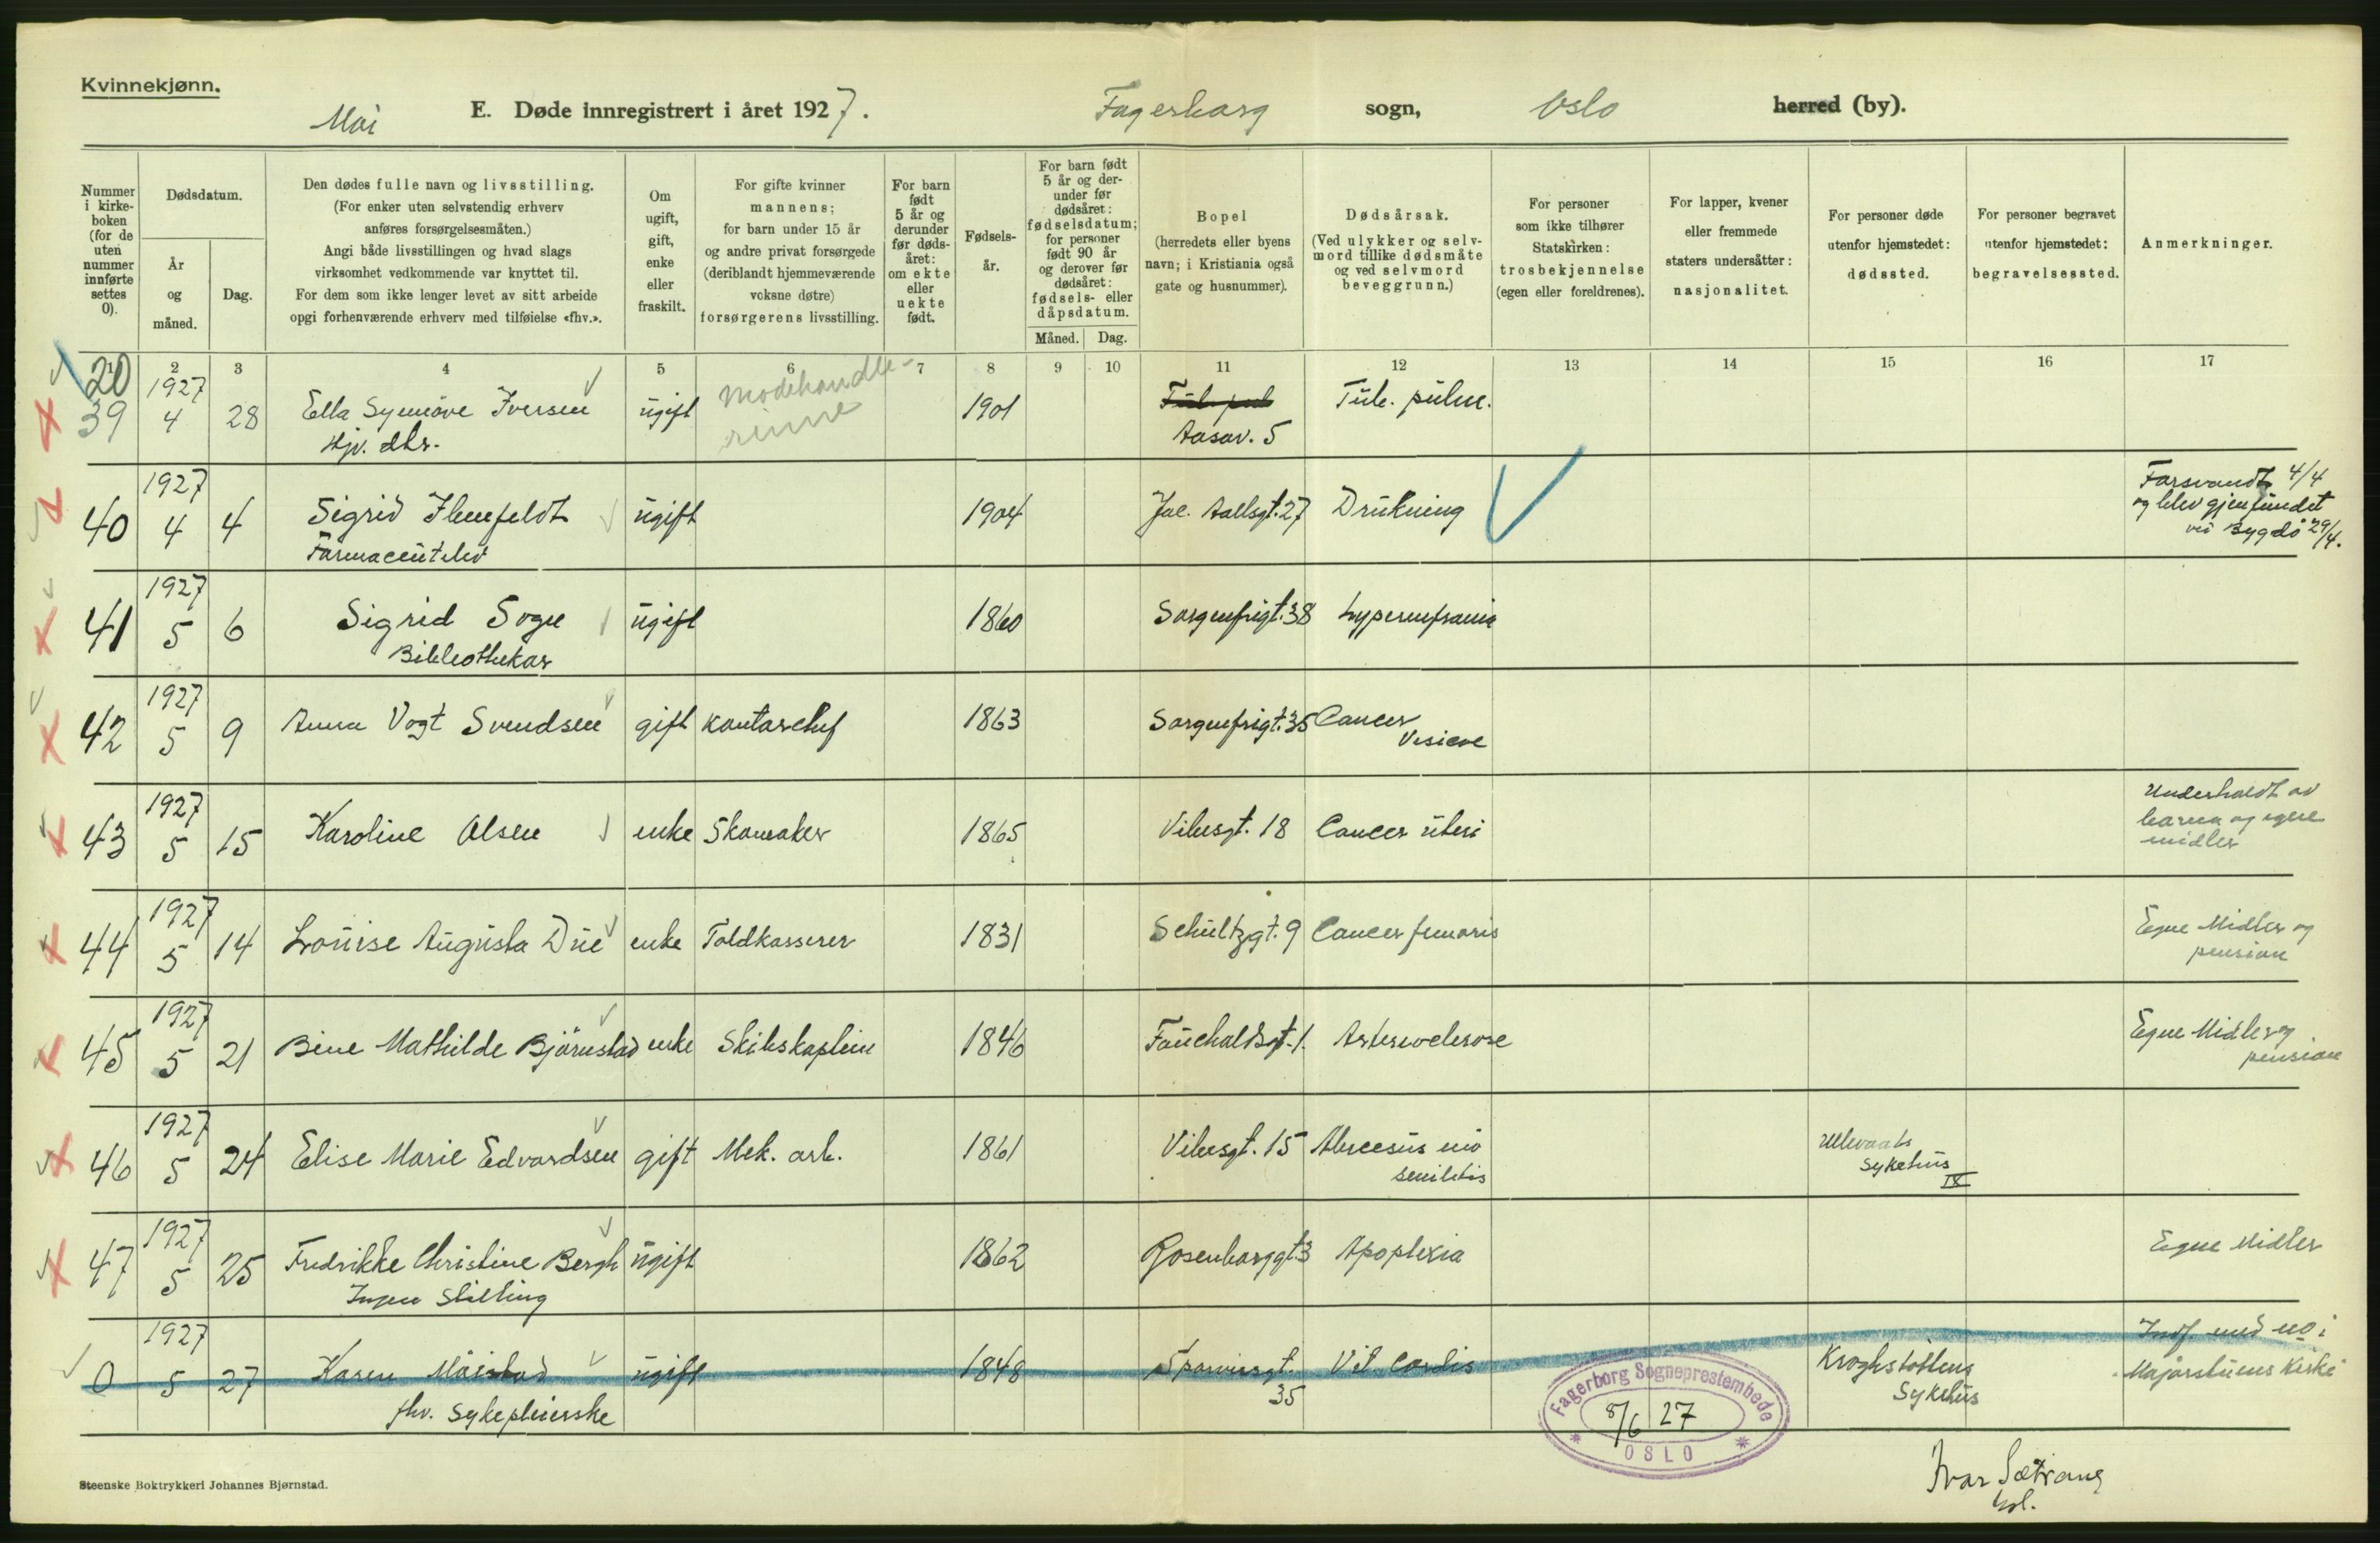 Kvinnekjønn.
Mai E. Døde innregistrert i året 1927. Fagerborg sogn, Oslo herred (by).
Nummer i kirkeboken (for de uten nummer innførte settes 0).
Dødsdatum.
År og måned.
Dag.
Den dødes fulle navn og livsstilling.
(For enker uten selvstendig erhverv
anføres forsørgelsesmåten.)
Angi både livsstillingen og hvad slags
virksomhet vedkommende var knyttet til.
For dem som ikke lenger levet av sitt arbeide
opgi forhenværende erhverv med tilføielse «fhv.».
Om ugift, gift, enke eller fraskilt.
For gifte kvinner
mannens;
for barn under 15 år
og andre privat forsørgede
(deriblandt hjemmeværende
voksne døtre)
forsørgerens livsstilling.
For barn født 5 år og derunder før dødsåret: om ekte eller uekte født.
Fødselsår.
For barn født 5 år og derunder før dødsåret: fødselsdatum; for personer født 90 år og derover før dødsåret: fødsels- eller dåpsdatum.
Måned. Dag.
Bopel
(herredets eller byens
navn; i Kristiania også
gate og husnummer).
Dødsårsak.
(Ved ulykker og selvmord tillike dødsmåte
og ved selvmord
beveggrunn.)
For personer
som ikke tilhører
Statskirken:
trosbekjennelse
(egen eller foreldrenes).
For lapper, kvener
eller fremmede
staters undersåtter:
nasjonalitet.
For personer døde
utenfor hjemstedet:
dødssted.
For personer begravet
utenfor hjemstedet:
begravelsessted.
Anmerkninger.
1 2 3 4 5 6 7 8 9 10 11 12 13 14 15 16 17
20
39 1927 4 28 Ella Synnöve Iversen ugift Modehandlerinne 1901 Tub. pul Tub. pulm.
Hjv. dtr. Aasav. 5
40 1927 4 4 Sigrid Ihlenfeldt ugift 1904 Jac. Aallsgt. 27 Drukning Forsvandt 4/4
Farmaceutelev og blev gjenfundet
ved Bygdö 29/4.
41 1927 5 6 Sigrid Sogn ugift 1860 Sorgenfrigt. 38
Bibliothekar
42 1927 5 9 Anna Vogt Svendsen gift Kontorchef 1863 Sorgenfrigt. 35 Cancer
Vesicae
43 1927 5 15 Karoline Olsen enke Skomaker 1865 Vibesgt. 18 Cancer uteri Underholdt av
barna og egne
midler
44 1927 5 14 Louise Augusta Due enke Toldkasserer 1831 Schultzgt. 9 Cancer femoris Egne Midler og
pension
45 1927 5 21 Bine Mathilde Björnstad enke Skibskaptein 1846 Fauchaldsgt. 1. Egne Midler og
pension
46 1927 5 24 Elise Marie Edvardsen gift Mek. arb. 1861 Vibesgt. 15 Ullevaals
senilitis Sykehus
IX
47 1927 5 25 Fredrikke Christine Bergh ugift 1862 Rosenborggt. 3 Apoplexia Egne Midler
Ingen Stilling
0 1927 5 27 Karen ugift 1848 35 Vit. Cordis Kroghstöttens
Sykehus
Indf. med no i
Majorstuens Kirke
fhv. Sykepleierske
Fagerborg Sogneprestembede
8/6 27
OSLO
Ivar Sætrang
Steenske Boktrykkeri Johannes Bjørnstad.